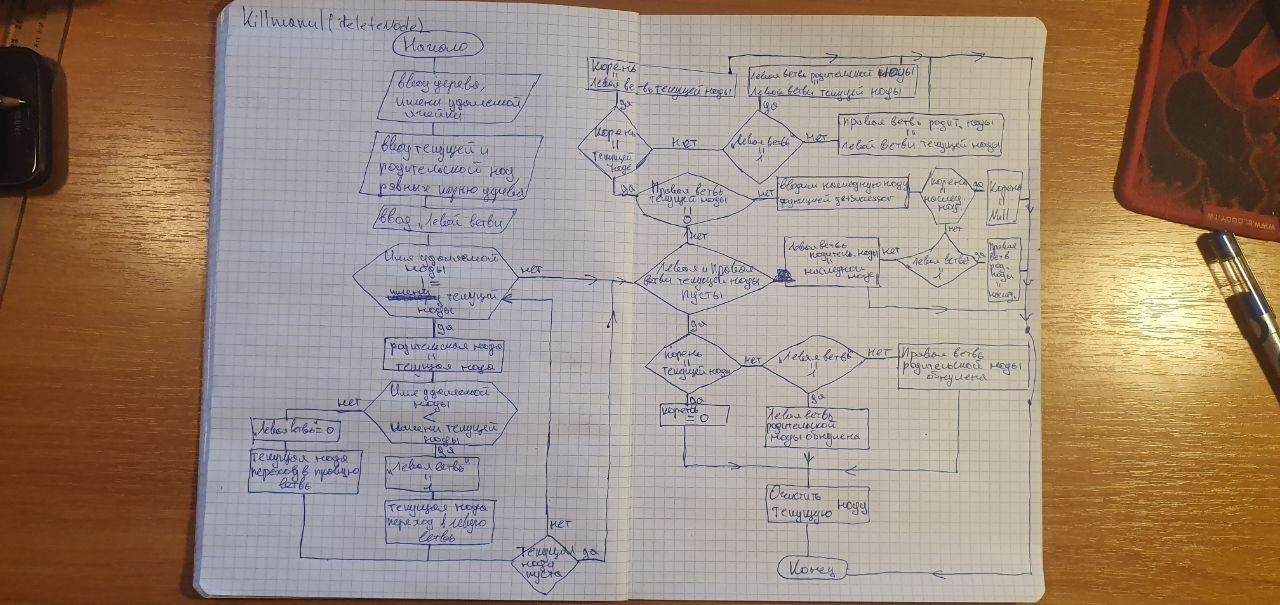 Killmanul (deleteNode)
Начало
ввод дерева,
имени удаляемой
ячейки
ввод текущей и
родительской нод
равных корню дерева
ввод "Левой ветви"
Имя удаляемой
ноды
=
имени текущей
ноды
нет
да
родительская нода
=
текущая нода
Имя удаляемой
ноды
<
Имени текущей
ноды
нет
да
"Левая ветвь" = 0
текущая нода
переход в правую
ветвь
"Левая ветвь"
=
1
текущая нода
переход в левую
ветвь
нет
Текущая
нода
пуста
да
Корень
=
Левая ветвь текущей ноды
да
Корень
=
текущей
ноде
нет
да
Левая ветвь родительской ноды
=
Левой ветви текущей ноды
да
Левая ветвь
=
1
нет
Правая ветвь родит. ноды
=
Левой ветви текущей ноды
Правая ветвь
текущей ноды
=
0
нет
вводим наследную ноду
функцией getSuccessor
Корень
=
наслед.
нод
да
Корень
=
Null
нет
нет
Левая ветвь
родитель. ноды
=
наследной
ноде
нет
Левая ветвь
=
1
да
Правая
ветв
род.
ноды
=
наслед.
Левая и Правая
ветви текущей ноды
пусты
да
Корень
=
текущей ноды
нет
Левая ветвь
=
1
нет
Правая ветвь
родительской ноды
обнулена
да
корень
= 0
да
Левая ветвь
родительской
ноды обнулена
Очистить
текущую ноду
Конец
WWW.BLOODY.TW